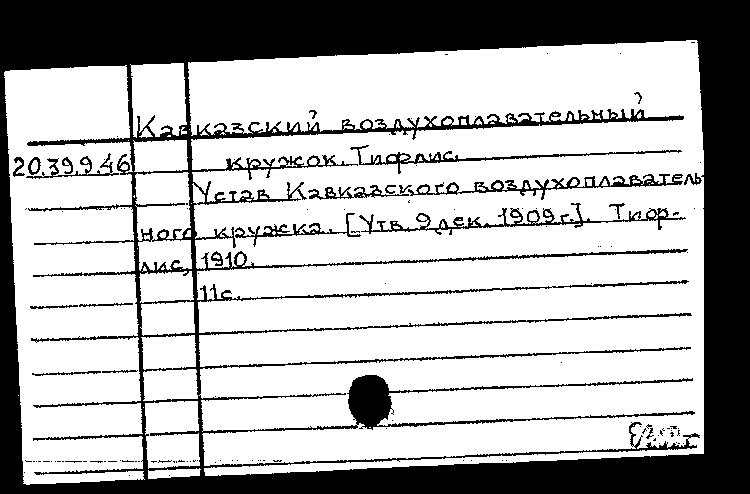 Кавказский воздухоплавательный
20.39.9.46 кружок. Тифлис.
Устав Кавказского воздухоплаватель-
ного кружка. [Утв. 9 дек. 1909 г.]. Тиф-
лис, 1910.
11 с.